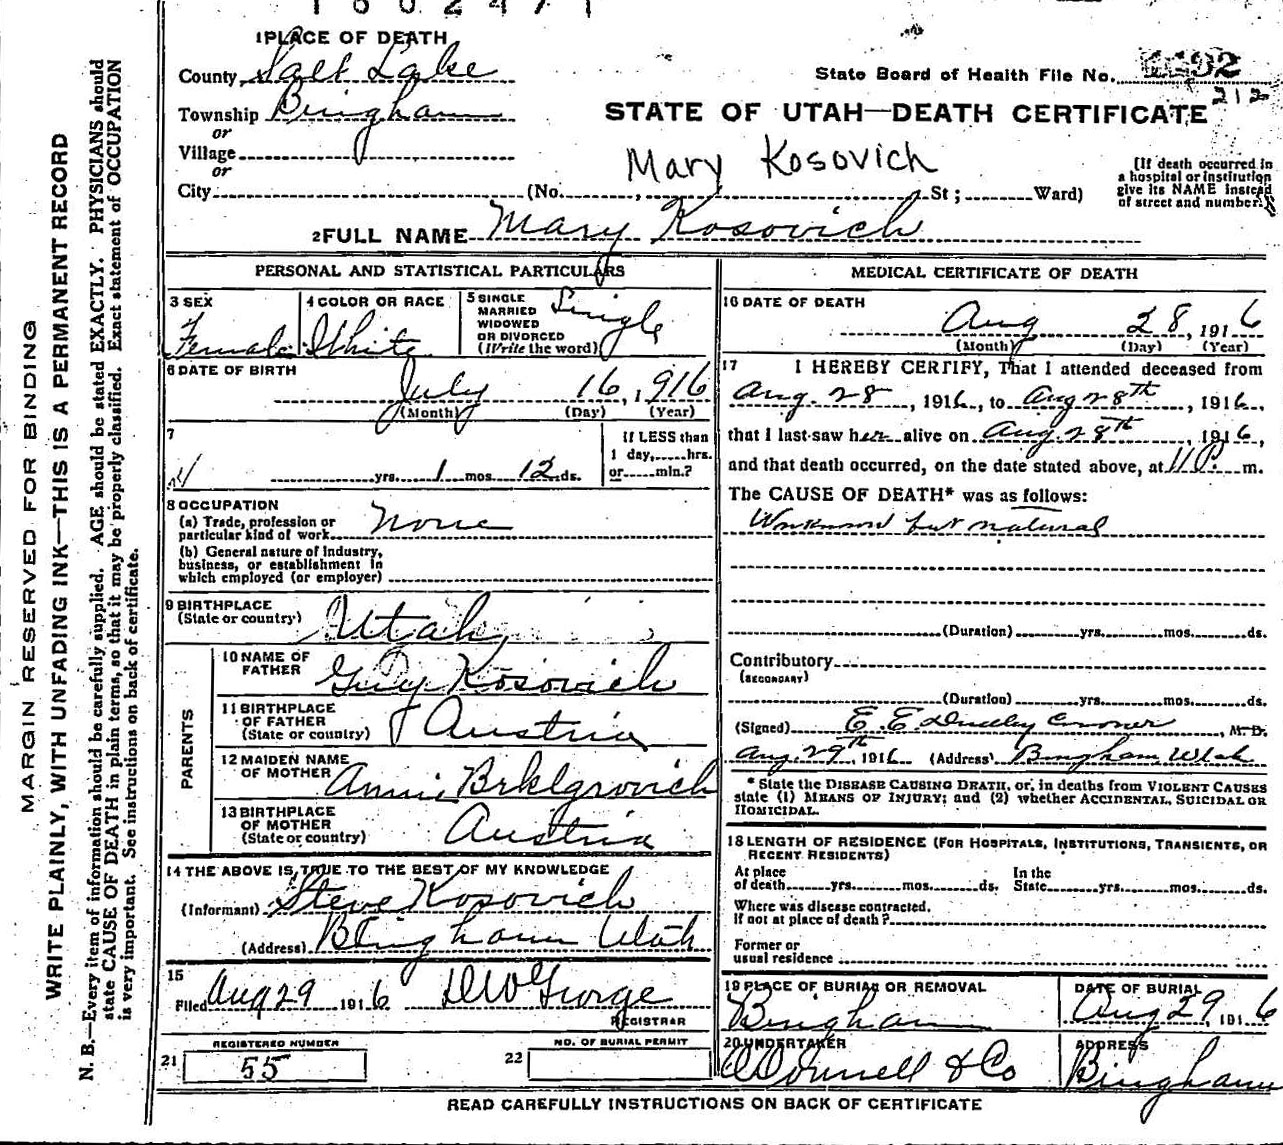 1 PLACE OF DEATH
County Salt Lake
State Board of Health File No.
Township Bingham
212
or
STATE OF UTAH—DEATH CERTIFICATE
Village
or
Mary Kosovich
City (No. , St; Ward)
(If death occurred in
a hospital or institution
give its NAME instead
of street and number.)
2 FULL NAME Mary Kosovich
PERSONAL AND STATISTICAL PARTICULARS
3 SEX
Female
4 COLOR OR RACE
White
5 SINGLE
MARRIED
WIDOWED
OR DIVORCED
(Write the word)
Single
6 DATE OF BIRTH
July 16, 1916
(Month) (Day) (Year)
7
yrs. 1 mos. 12 ds.
If LESS than
1 day, hrs.
or min.?
8 OCCUPATION
(a) Trade, profession or
particular kind of work None
(b) General nature of industry,
business, or establishment in
which employed (or employer)
9 BIRTHPLACE
(State or country) Utah
PARENTS
10 NAME OF
FATHER Guy Kosovich
11 BIRTHPLACE
OF FATHER
(State or country) Austria
12 MAIDEN NAME
OF MOTHER Annie Brklgrovich
13 BIRTHPLACE
OF MOTHER
(State or country) Austria
14 THE ABOVE IS TRUE TO THE BEST OF MY KNOWLEDGE
(Informant) Steve Kosovich
(Address) Bingham Utah
15
Filed Aug 29 1916 DW George
REGISTRAR
REGISTERED NUMBER
21 55
NO. OF BURIAL PERMIT
22
MEDICAL CERTIFICATE OF DEATH
16 DATE OF DEATH
Aug 28, 1916
(Month) (Day) (Year)
17 I HEREBY CERTIFY, That I attended deceased from
Aug. 28, 1916, to Aug 28th, 1916,
that I last saw her alive on Aug. 28th, 1916,
and that death occurred, on the date stated above, at 11 P. m.
The CAUSE OF DEATH* was as follows:
Unknown but natural
(Duration) yrs. mos. ds.
Contributory
(SECONDARY)
(Duration) yrs. mos. ds.
(Signed) E. E. Dudley Coroner, M. D.
Aug. 29th, 1916 (Address) Bingham, Utah
* State the DISEASE CAUSING DEATH, or, in deaths from VIOLENT CAUSES
state (1) MEANS OF INJURY; and (2) whether ACCIDENTAL, SUICIDAL OR
HOMICIDAL.
18 LENGTH OF RESIDENCE (FOR HOSPITALS, INSTITUTIONS, TRANSIENTS, OR
RECENT RESIDENTS)
At place
of death yrs. mos. ds.
In the
State yrs. mos. ds.
Where was disease contracted,
If not at place of death?
Former or
usual residence
19 PLACE OF BURIAL OR REMOVAL
Bingham
DATE OF BURIAL
Aug 29, 1916
20 UNDERTAKER
O'Donnell & Co
ADDRESS
Bingham
READ CAREFULLY INSTRUCTIONS ON BACK OF CERTIFICATE
MARGIN RESERVED FOR BINDING
WRITE PLAINLY, WITH UNFADING INK—THIS IS A PERMANENT RECORD
N. B.—Every item of information should be carefully supplied. AGE should be stated EXACTLY. PHYSICIANS should
state CAUSE OF DEATH in plain terms, so that it may be properly classified. Exact statement of OCCUPATION
is very important. See instructions on back of certificate.